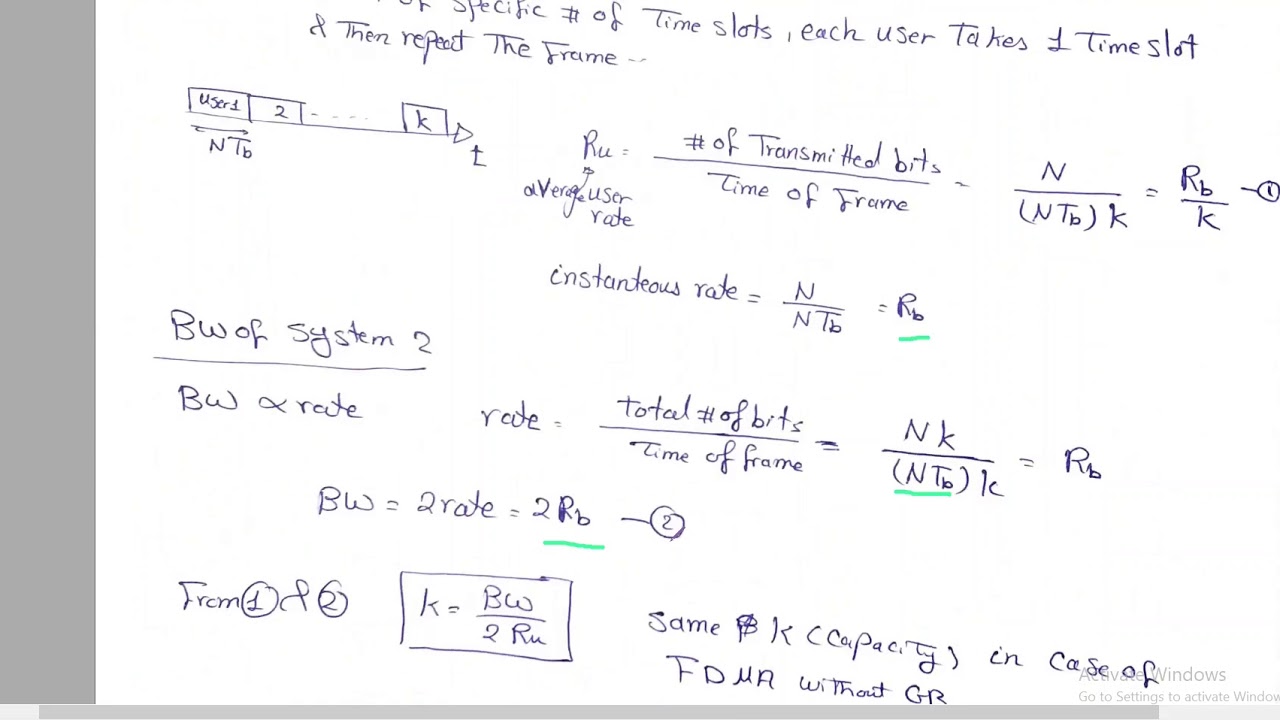 of specific # of Time slots, each user Takes 1 Time slot
& Then repeat The Frame --
user1 2 - . . . . k
NTb t
Ru = # of Transmitted bits / Time of Frame = N / (NTb) k = Rb / k — ①
average user rate
instanteous rate = N / NTb = Rb
BW of System 2
BW ∝ rate rate = total # of bits / Time of frame = N k / (NTb) k = Rb
BW = 2 rate = 2 Rb — ②
From ① & ② k = BW / 2 Ru
Same k (capacity) in case of
FDMA without GB
Activate Windows
Go to Settings to activate Window